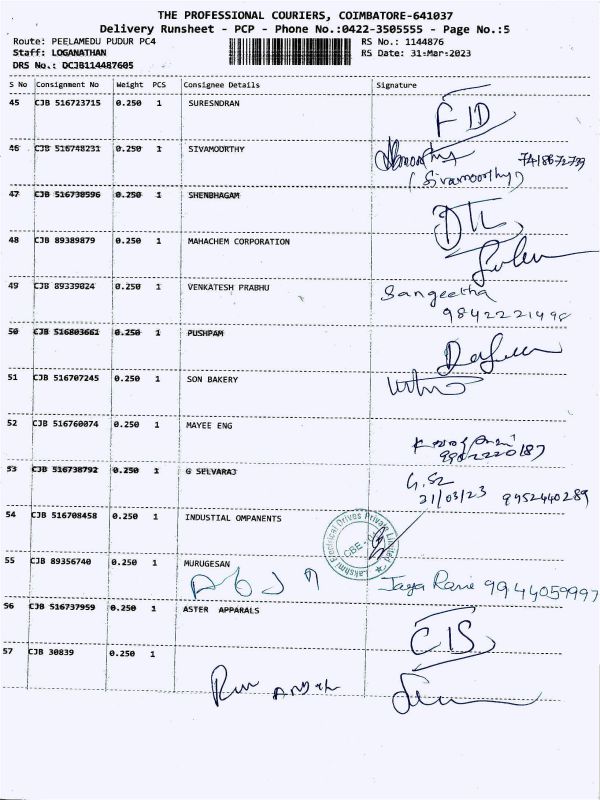 THE PROFESSIONAL COURIERS, COIMBATORE-641037
Delivery Runsheet - PCP - Phone No.:0422-3505555 - Page No.:5
Route: PEELAMEDU PUDUR PC4
RS No.: 1144876
Staff: LOGANATHAN
RS Date: 31-Mar-2023
DRS No.: DCJB114487605
S No Consignment No Weight PCS Consignee Details Signature
45 CJB 516723715 0.250 1 SURESNDRAN
FID
46 CJB 516748231 0.250 1 SIVAMOORTHY
(Sivamoorthy)
47 CJB 516738596 0.250 1 SHENBHAGAM
DIL
48 CJB 89389879 0.250 1 MAHACHEM CORPORATION
49 CJB 89339024 0.250 1 VENKATESH PRABHU
Sangeetha
9842221498
50 CJB 516803661 0.250 1 PUSHPAM
51 CJB 516707245 0.250 1 SON BAKERY
52 CJB 516760074 0.250 1 MAYEE ENG
53 CJB 516738792 0.250 1 G SELVARAJ
21/03/23 9952440289
54 CJB 516708458 0.250 1 INDUSTIAL OMPANENTS
Lakshmi Electrical Drives Private Limited
CBE
55 CJB 89356740 0.250 1 MURUGESAN
Jaya Rani 9944059997
56 CJB 516737959 0.250 1 ASTER APPARALS
CIS
57 CJB 30839 0.250 1